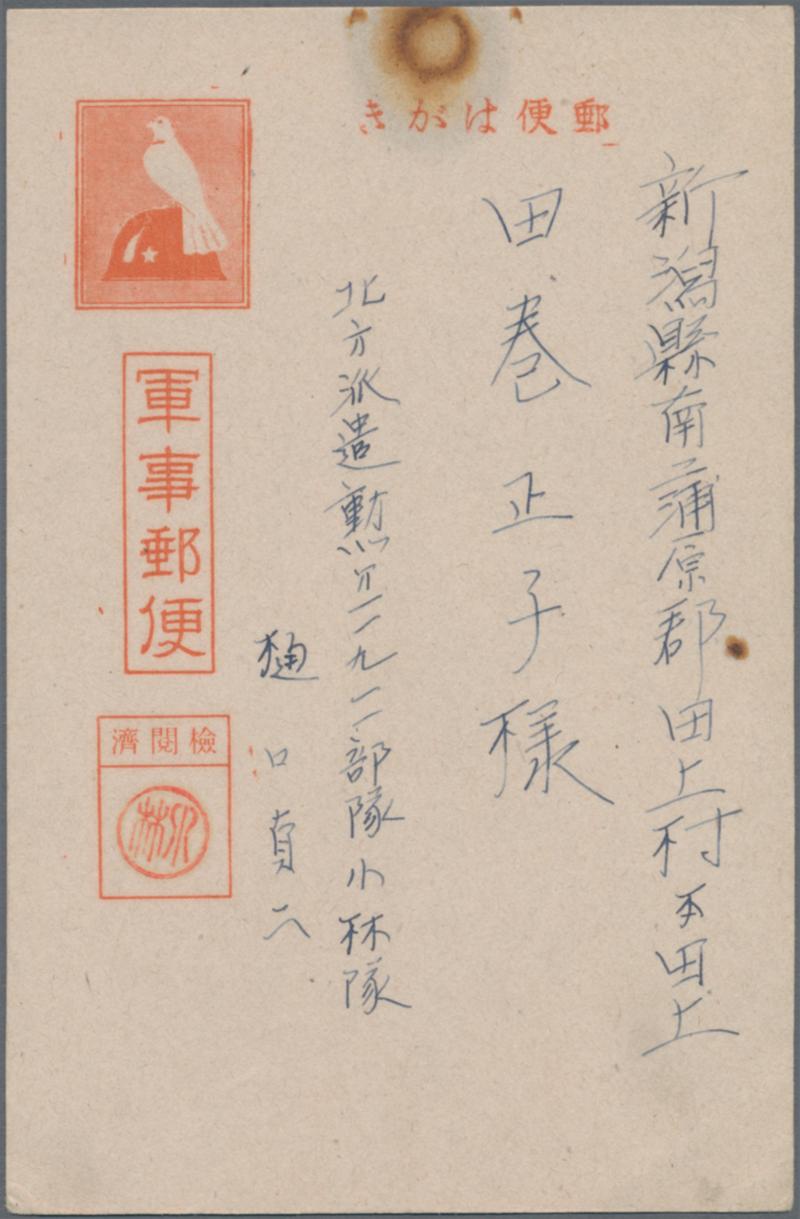 郵便はがき
新潟縣南蒲原郡田上村本田上
田巻正子様
北方派遣勲第一一九一一部隊小林隊
樋口貞二
軍事郵便
檢閱濟
小林